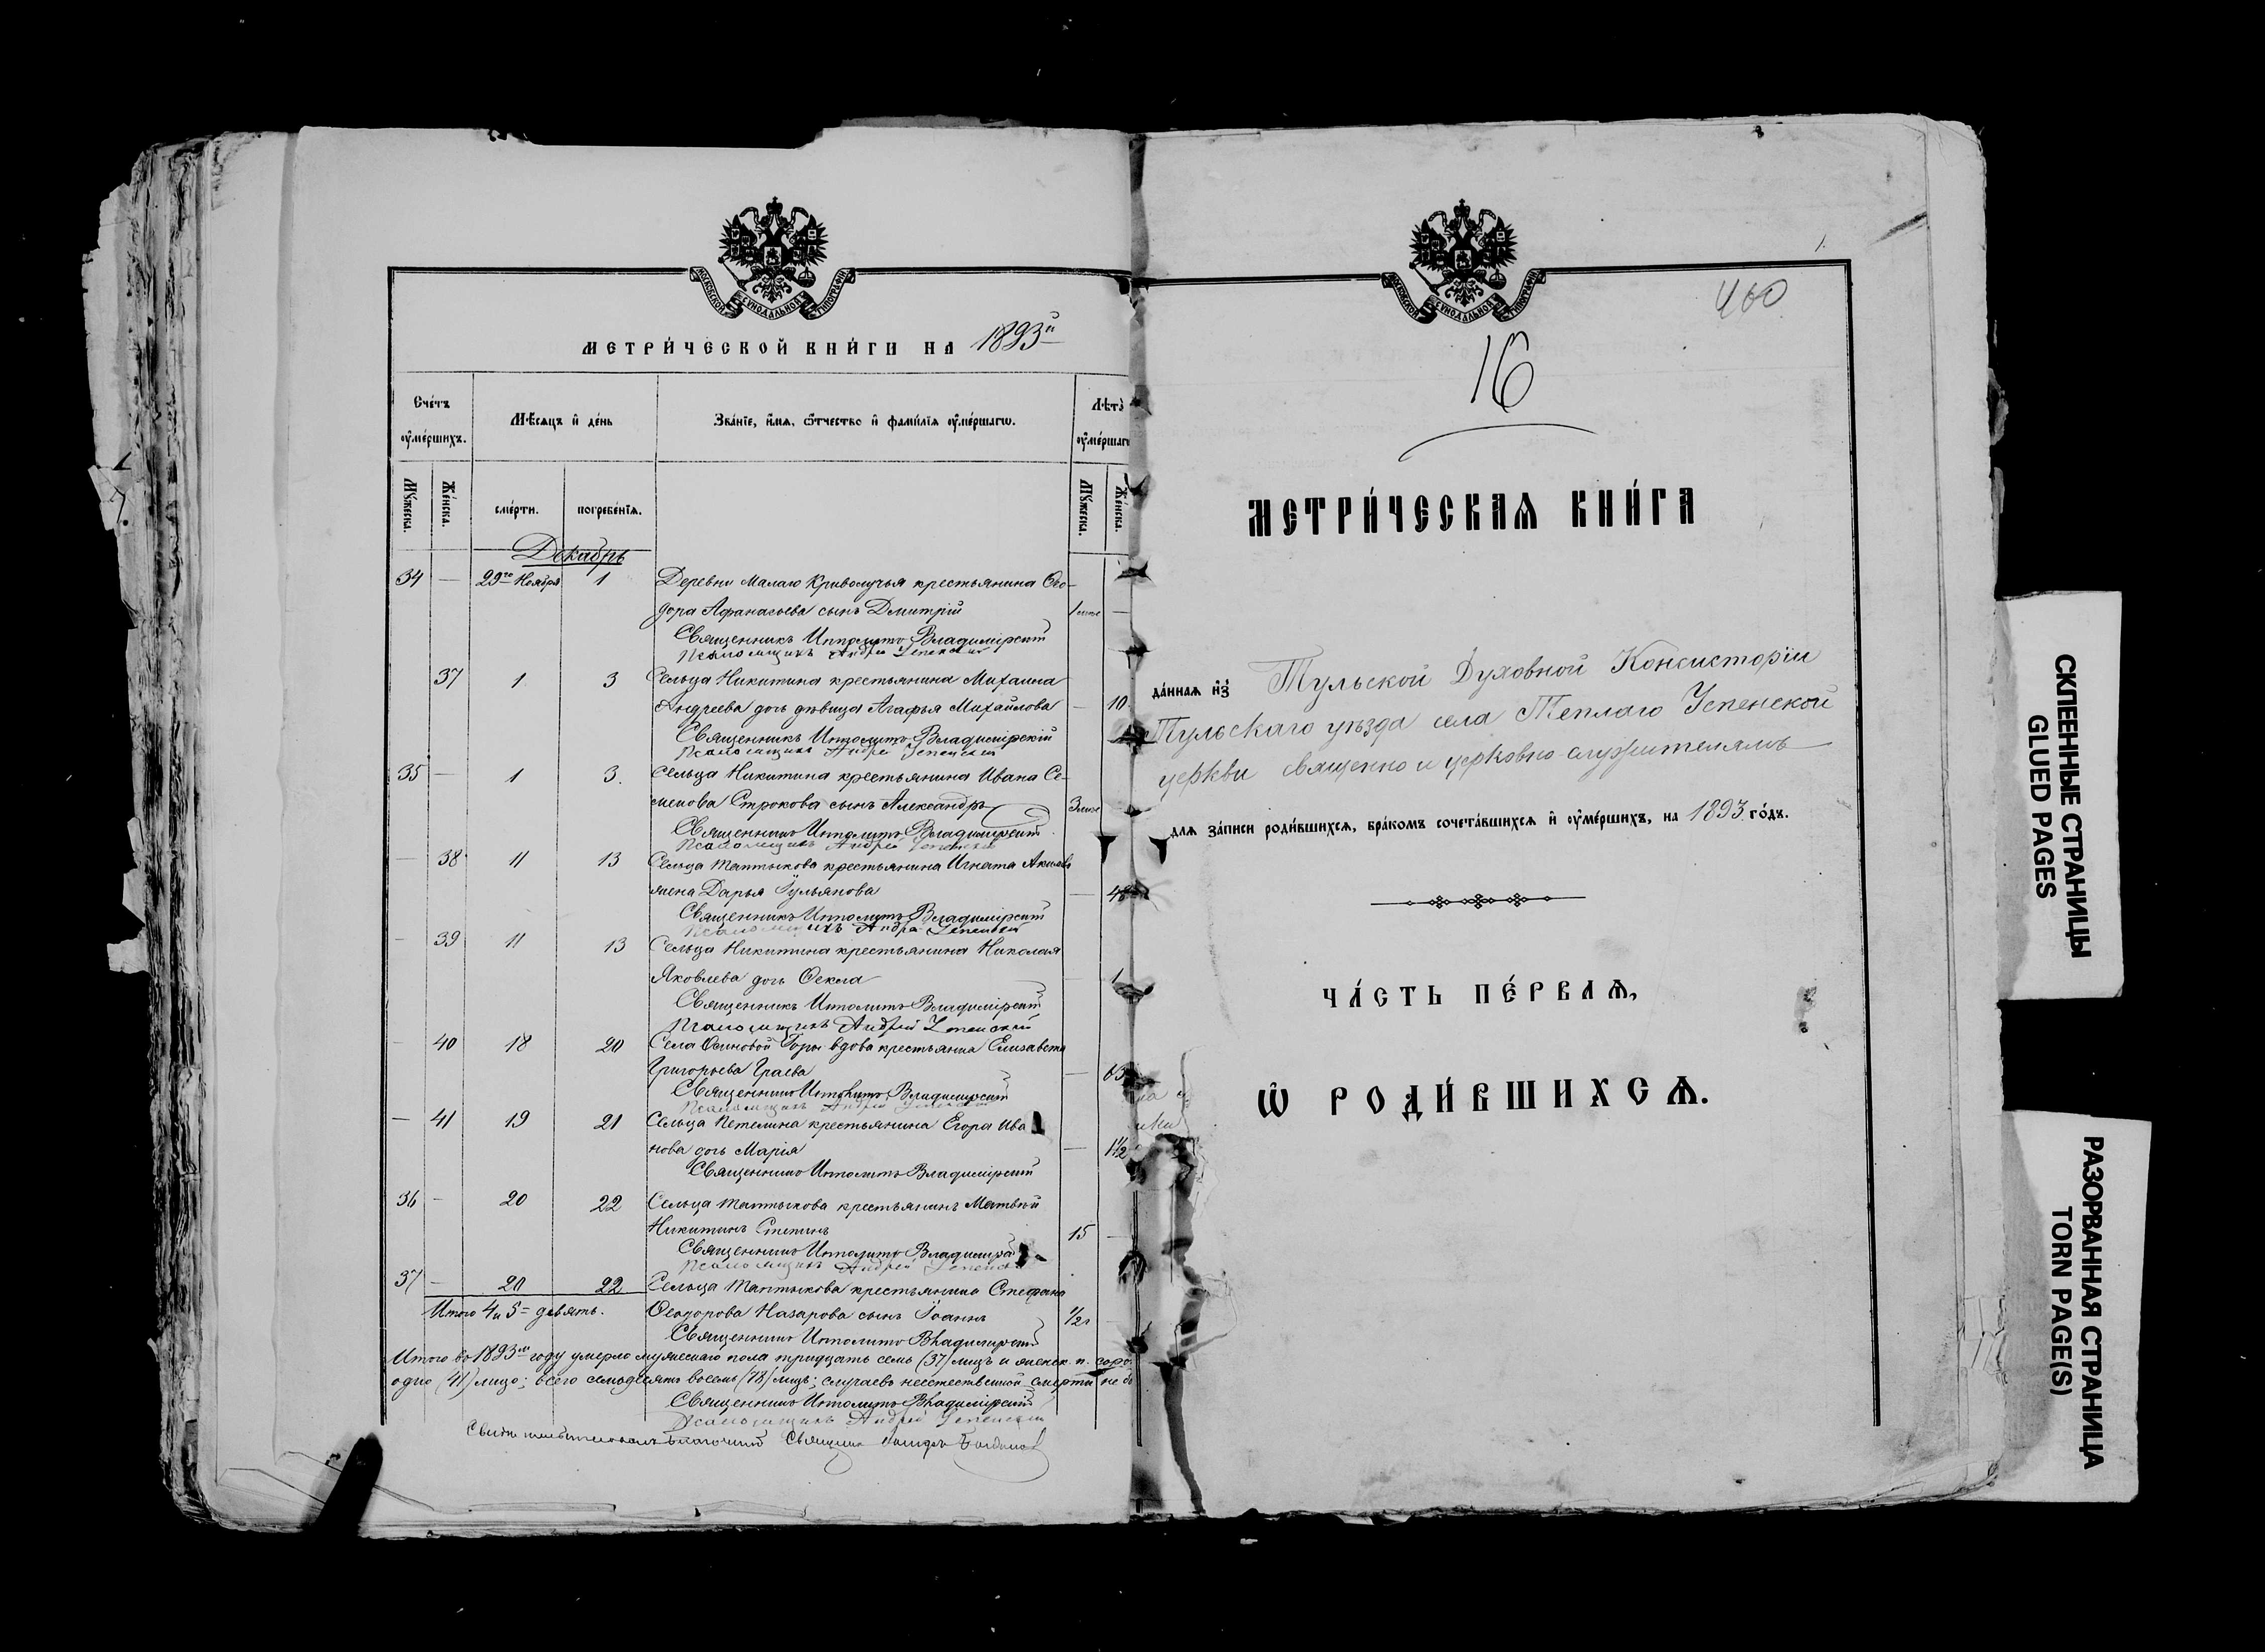 МОСКОВСКОЙ СѴНОДАЛЬНОЙ ТИПОГРАФІИ
МЕТРИ́ЧЕСКОЙ КНИ́ГИ НА 1893й
Сче́тъ ᲂу҆ме́ршихъ.
Мѣ́сяцъ и҆ де́нь
Зва́нїе, и҆́мѧ, ѻ҆́тчество и҆ фами́лїѧ ᲂу҆ме́ршагѡ.
Лѣ́тъ ᲂу҆ме́ршагѡ
Мꙋ́жеска. Же́нска. сме́рти. погребе́нїѧ. Мꙋ́жеска. Же́нска.
Декабрь
34 — 29го Ноября 1 Деревни Малаго Криволучья крестьянина Ѳео-
дора Аѳанасьева сынъ Димитрій —
Священникъ Ипполитъ Владимірскій
Псаломщикъ Андрей Успенскій
37 1 3 Сельца Никитина крестьянина Михаила
Андреева дочь дѣвица Агафья Михайлова — 10
Священникъ Ипполитъ Владимірскій
Псаломщикъ Андрей Успенскій
35 — 1 3. Сельца Никитина крестьянина Ивана Се-
менова Строкова сынъ Александръ
Священникъ Ипполитъ Владимірскій
Псаломщикъ Андрей Успенскій
— 38 11 13 Сельца Таптыкова крестьянина Игната
жена Дарья Іульянова — 48
Священникъ Ипполитъ Владимірскій
Псаломщикъ Андрей Успенскій
— 39 11 13 Сельца Никитина крестьянина Николая
Яковлева дочь Ѳекла — 1
Священникъ Ипполитъ Владимірскій
Псаломщикъ Андрей Успенскій
— 40 18 20 Села Осиновой Горы вдова крестьянка Елизавета
Григорьева — 63
Священникъ Ипполитъ Владимірскій
Псаломщикъ Андрей Успенскій
— 41 19 21 Сельца Петелина крестьянина Егора Ива
нова дочь Марія — 1½
Священникъ Ипполитъ Владимірскій
36 — 20 22 Сельца Таптыкова крестьянинъ Матвѣй
Никитинъ 15 —
Священникъ Ипполитъ Владимірс
Псаломщикъ Андрей Успенскій
37 — 20 22 Сельца Таптыкова крестьянина Стефана
Итого 4 и 5 = девять. Ѳеодорова Назарова сынъ Іоаннъ ½
Священникъ Ипполитъ Владимірскій
Итого въ 1893мъ году умерло мужескаго пола тридцать семь (37) лицъ и женск. п. соро
одно (41) лицо; всего семьдесятъ восемь (78) лицъ; случаевъ неестественной смерти не бы
Священникъ Ипполитъ Владимірскій
Псаломщикъ Андрей Успенскій
Благочинный Священникъ
МОСКОВСКОЙ СѴНОДАЛЬНОЙ ТИПОГРАФІИ
1.
460
16
МЕТРИ́ЧЕСКАѦ КНИ́ГА
да́ннаѧ и҆з̾ Тульской Духовной Консисторіи
Тульскаго уѣзда села Теплаго Успенской
церкви священно и церковно-служителямъ
длѧ за́писи роди́вшихсѧ, бра́комъ сочета́вшихсѧ и҆ ᲂу҆ме́ршихъ, на 1893 го́дъ.
ЧА́СТЬ ПЕ́РВАѦ,
Ѡ҆ РОДИ́ВШИХСѦ.
СКЛЕЕННЫЕ СТРАНИЦЫ
GLUED PAGES
РАЗОРВАННАЯ СТРАНИЦА
TORN PAGE(S)